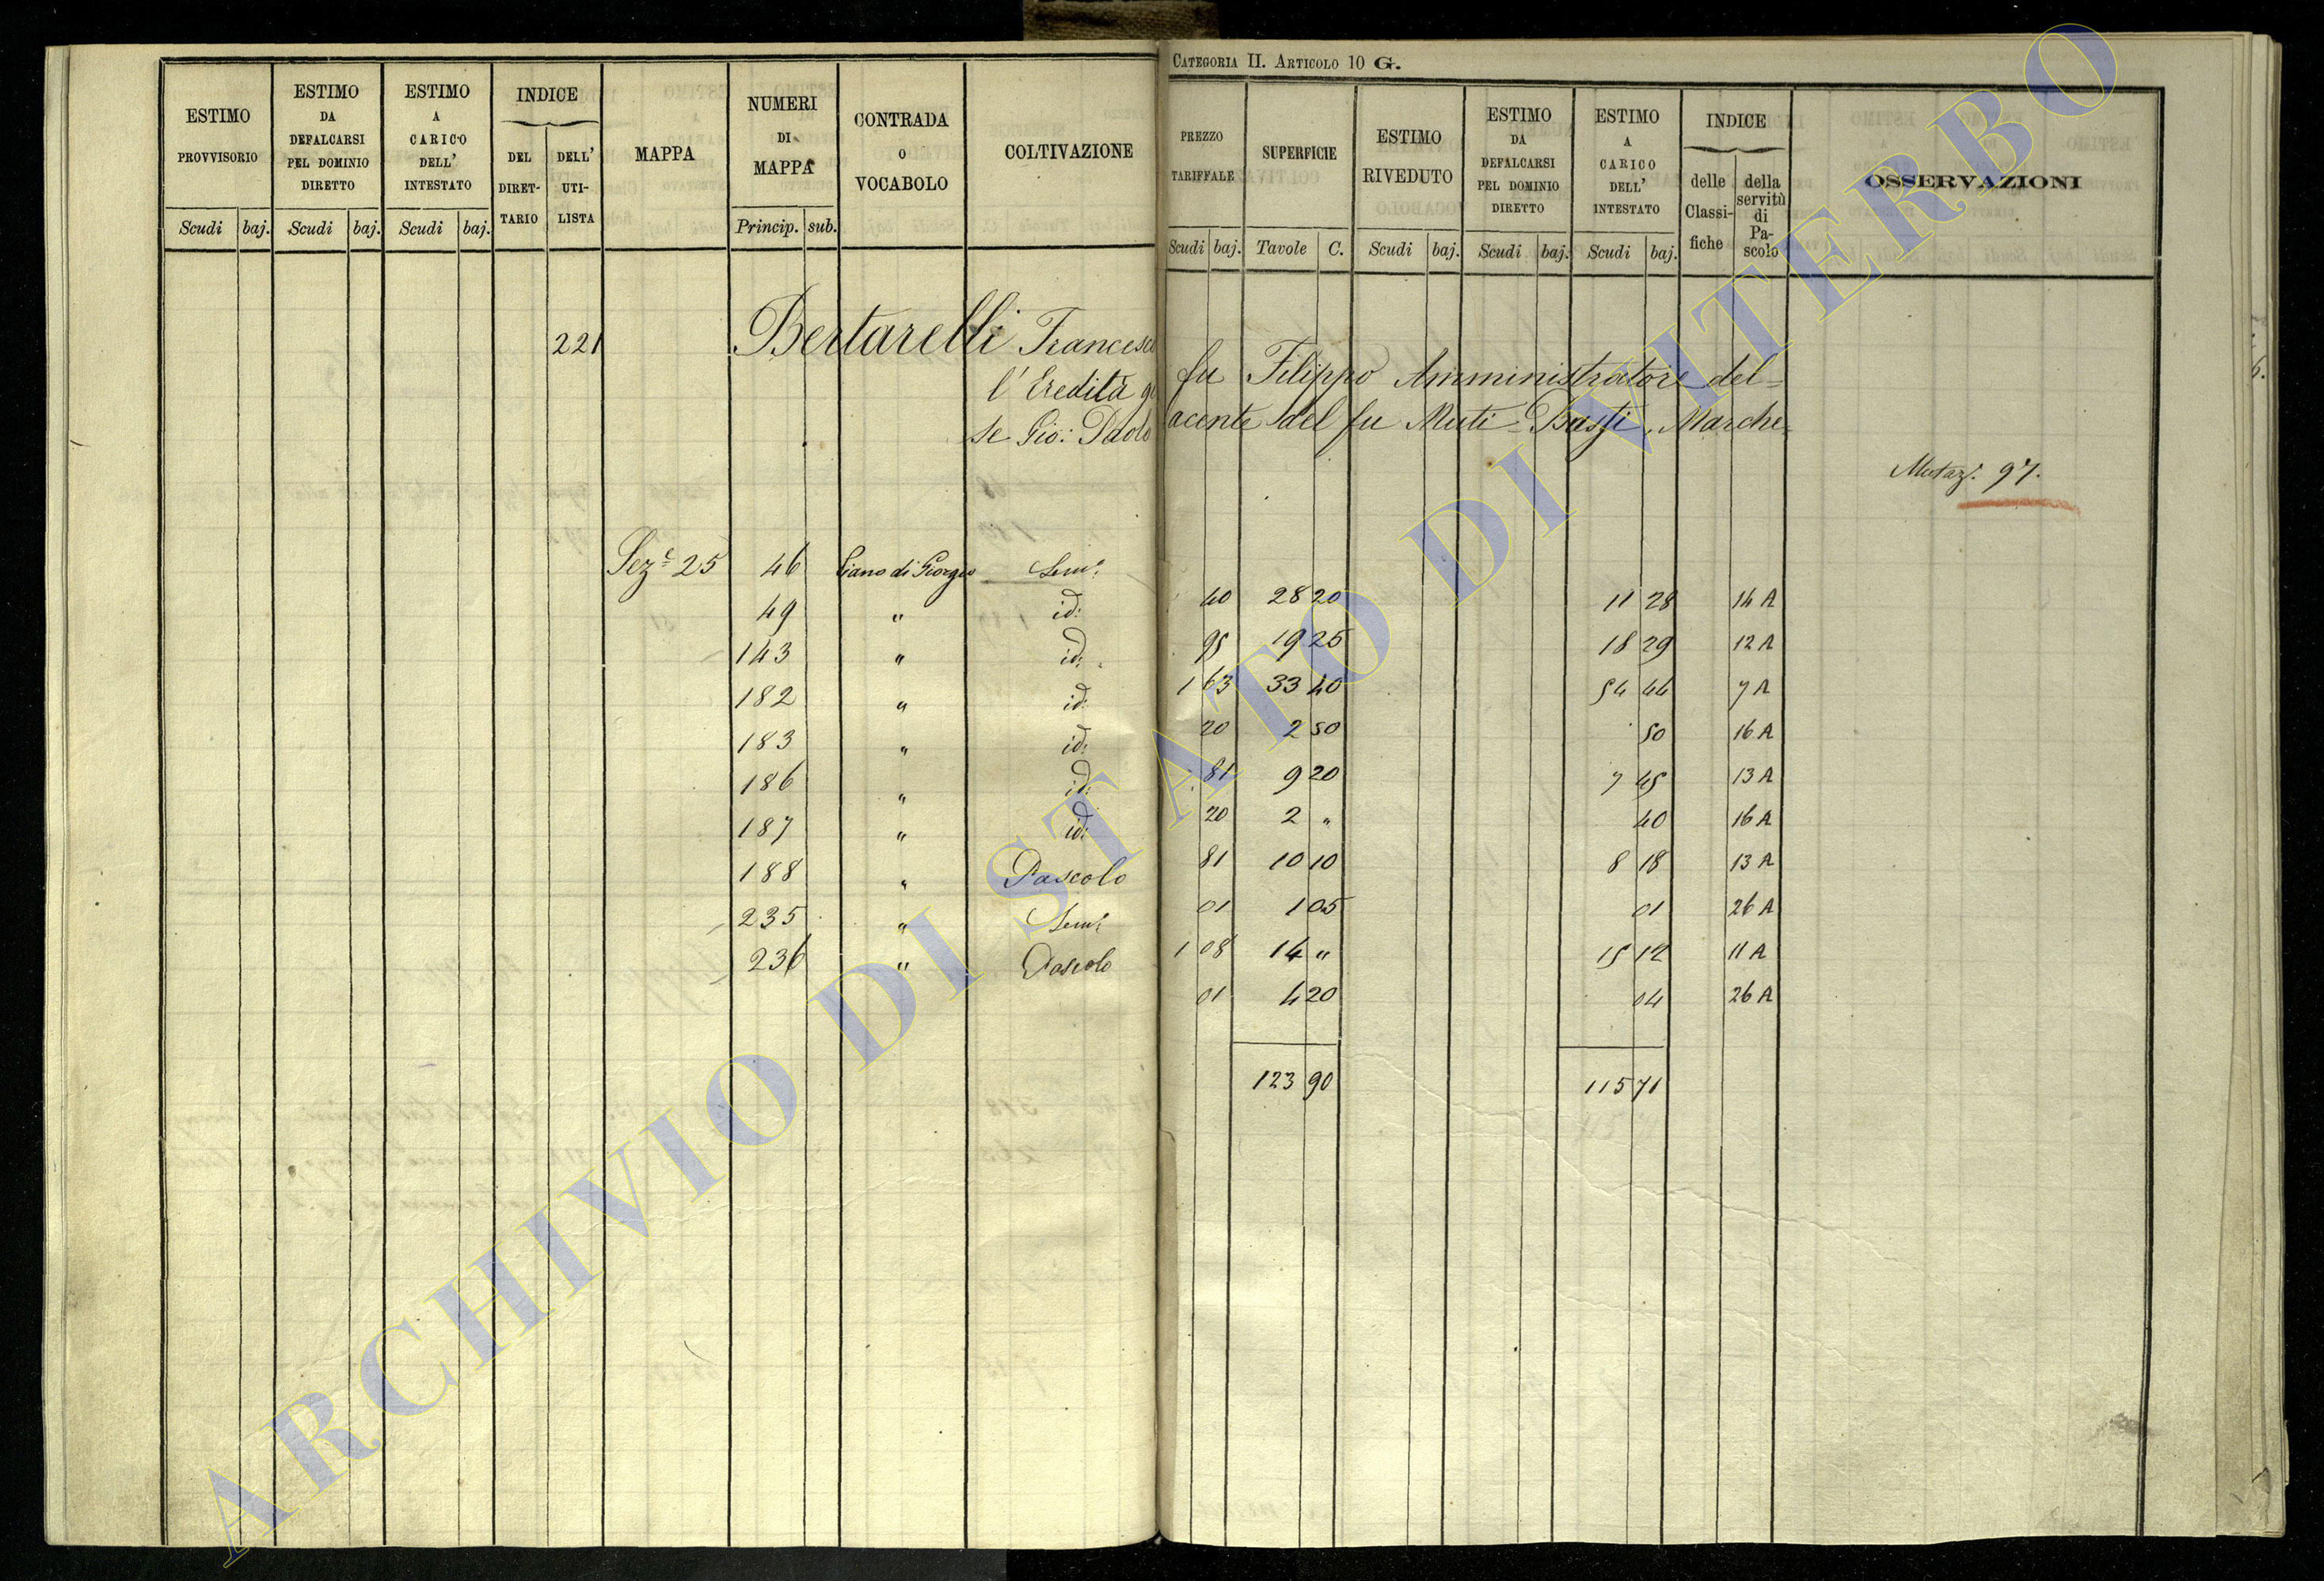 CATEGORIA II. ARTICOLO 10 G.
ESTIMO PROVVISORIO Scudi baj.
ESTIMO DA DEFALCARSI PEL DOMINIO DIRETTO Scudi baj.
ESTIMO A CARICO DELL' INTESTATO Scudi baj.
INDICE DEL DIRETTARIO DELL' UTILISTA
MAPPA
NUMERI DI MAPPA Princip. sub.
CONTRADA O VOCABOLO
COLTIVAZIONE
PREZZO TARIFFALE Scudi baj.
SUPERFICIE Tavole C.
ESTIMO RIVEDUTO Scudi baj.
ESTIMO DA DEFALCARSI PEL DOMINIO DIRETTO Scudi baj.
ESTIMO A CARICO DELL' INTESTATO Scudi baj.
INDICE delle Classifiche della servitù di Pascolo
OSSERVAZIONI
221 Bertarelli Francesco fu Filippo Amministratore del=
l'Eredità giacente del fu Muti=Bussi Marche=
se Gio: Paolo
Mutaz. 97.
Sez.e 25 46 Piano di Giorgio Sem.o 40 28 20 11 28 14 A
49 " id: 95 19 25 18 29 12 A
143 " id: 1 63 33 40 54 44 7 A
182 " id: 20 2 50 50 16 A
183 " id: 81 9 20 7 45 13 A
186 " id: 20 2 " 40 16 A
187 " id: 81 10 10 8 18 13 A
188 " Pascolo 01 1 05 01 26 A
235 " Sem.o 1 08 14 " 15 12 11 A
236 " Pascolo 01 4 20 04 26 A
123 90 115 71
ARCHIVIO DI STATO DI VITERBO